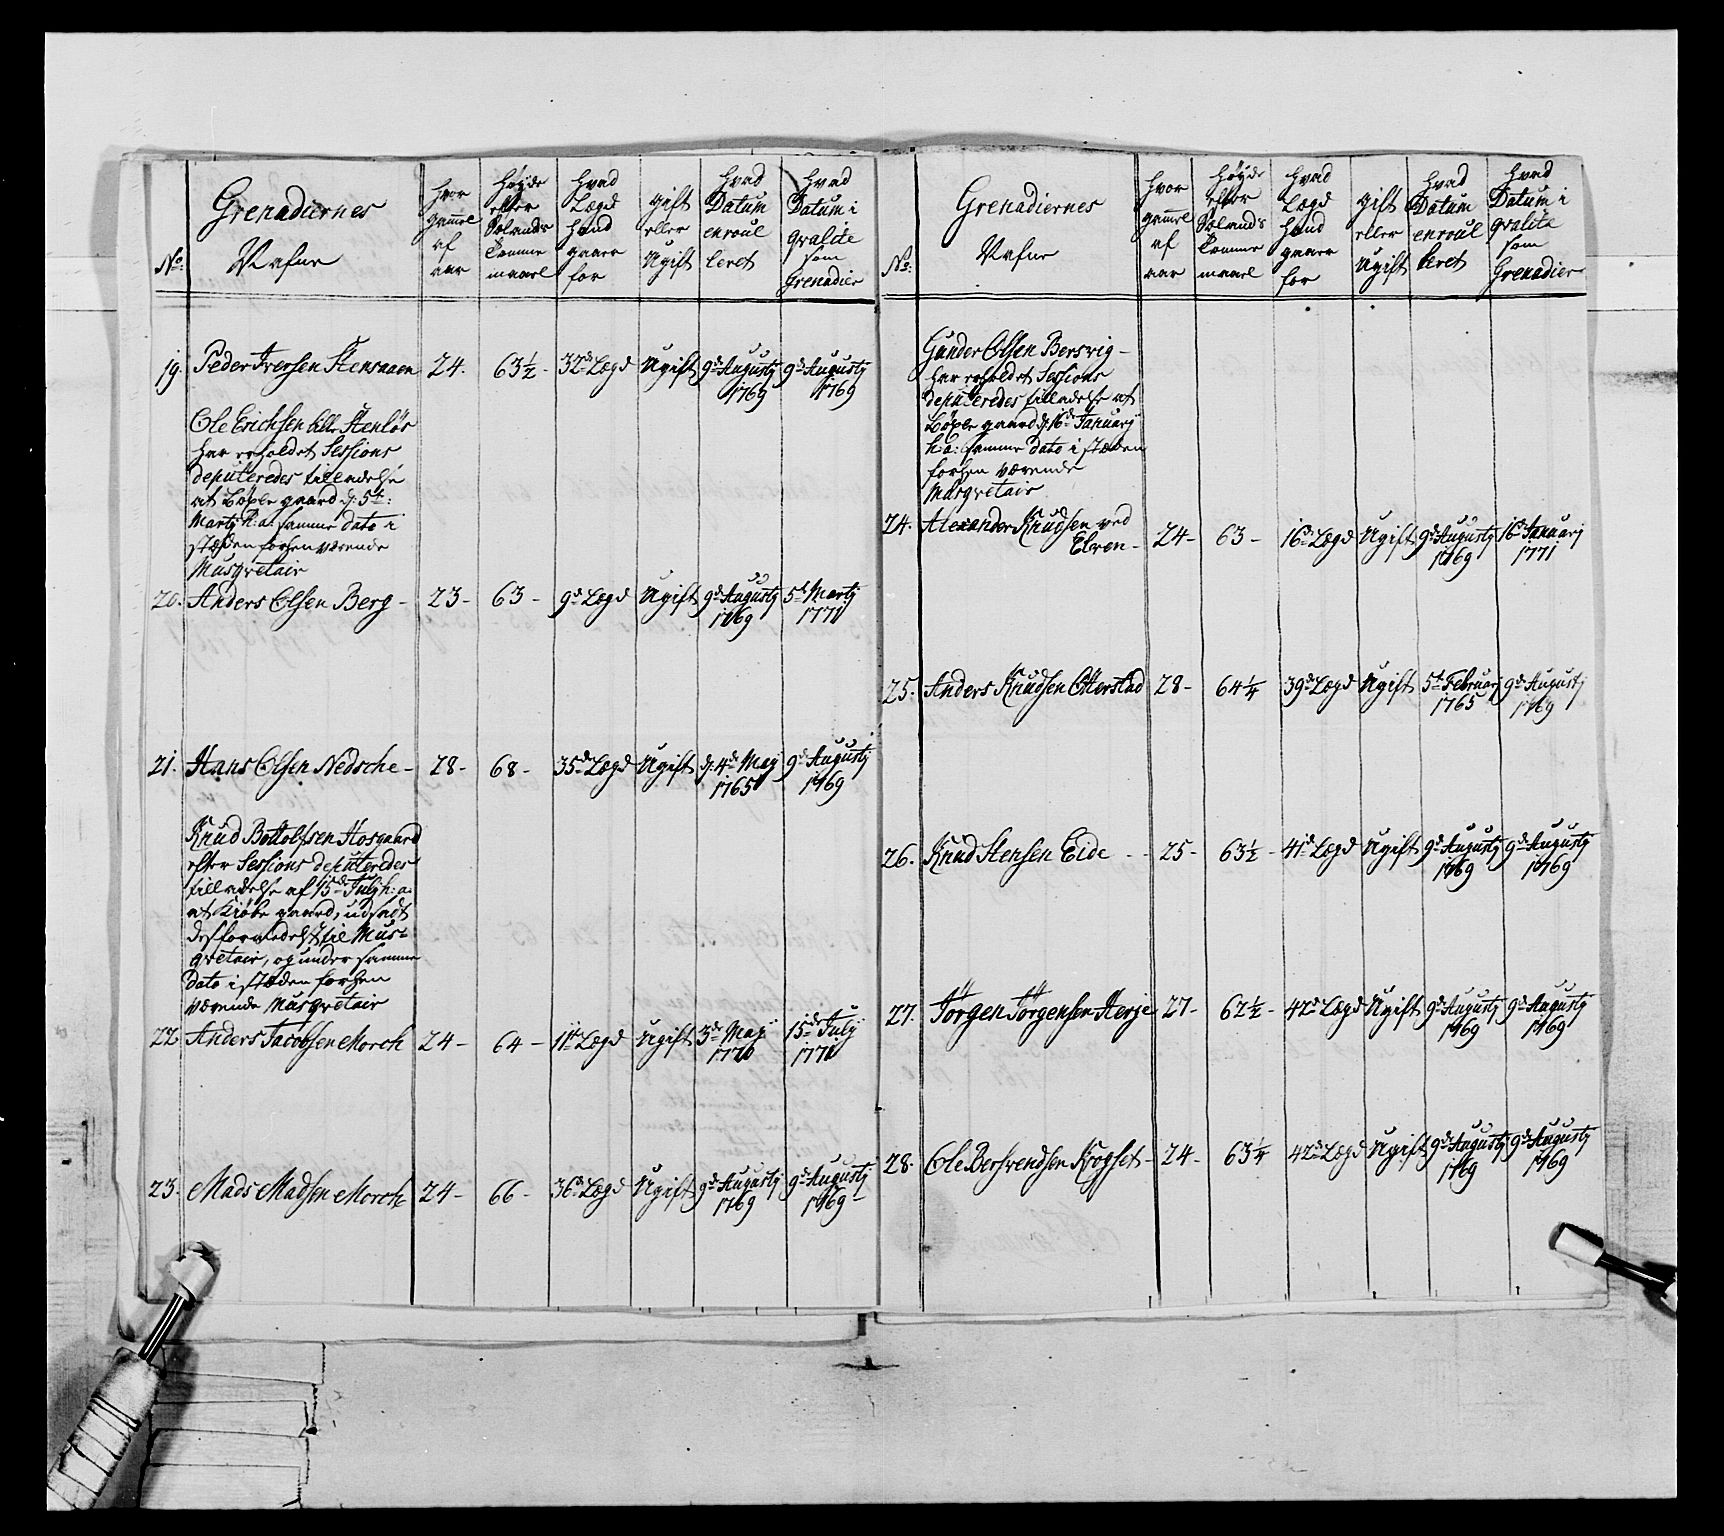 No:
Grenadiernes
Nafne
hvor
gamel
af
aar
Høyde
efter
Sælands
Tomme
maael
Hvad
Lægd
hand
gaaer
for
gift
eller
Ugift
Hvad
Datum
enroul
leret
Hvad
Datum i
qvalite
som
Grenadier
19 Peder Iversen Stensaaen 24. 63½ - 32d Lægd Ugift 9d Augustj 1769 9d Augustj 1769
Ole Erichsen lille Stenlös
har erholdet Sessions
deputeredes tilladelse
at Løpe gaard d: 5te:
Martj h: a: samme dato i
stæden forhen værende
Musqvetair
20. Anders Olsen Berg - 23 - 63 - 9d Lægd Ugift 9d Augustj 1769 5te Martj 1771
21. Hans Olsen Nedsche - 28 - 68 - 35d Lægd Ugift d: 4de Maj 1765 9d Augustj 1769
Knud Bottolfsen Hosgaard
efter Sessions deputeredes
tilladelse af 15de Julj h: a:
at kiøbe gaard, udsadt
desformedelst til Mus-
qvetair, og under samme
Dato i stæden forhen
værende Musqvetair
22 Anders Jacobsen Morch 24 - 64 - 11te Lægd Ugift 3de Maj 1770 15de Julj 1771
23. Mads Madsen Morch 24 - 66 - 36d Lægd Ugift 9d Augustj 1769 9d Augustj 1769 -
No:
Grenadiernes
Nafne
hvor
gamel
af
aar
Høyde
efter
Sælands
Tomme
maael
Hvad
Lægd
hand
gaaer
for
gift
eller
Ugift
Hvad
Datum
enroul
leret
Hvad
Datum i
qvalite
som
Grenadier
Gunder Olsen Bersvig -
har erholdet Sessions
deputeredes tilladelse at
Løpe gaard d: 16de Januarj
h: a: samme dato i stæden
forhen værende
Musqvetair
24. Alexander Knudsen ved
Elven - 24 - 63 - 16d Lægd Ugift 9d Augustj 1769 16d Januarj 1771
25. Anders Knudsen Otterstad 28 - 64¼ 39d Lægd Ugift 5te Februarj 1765 9d Augustj 1769
26. Knud Stensen Eide - - 25 - 63½ - 41d Lægd Ugift 9d Augustj 1769 9d Augustj 1769
27. Jörgen Jörgensen Herje 27 - 62½ - 42d Lægd Ugift 9d Augustj 1769 9d Augustj 1769
28. Ole Bersvendsen Krogset - 24 - 63¼ - 42d Lægd Ugift 9d Augustj 1769 9d Augustj 1769